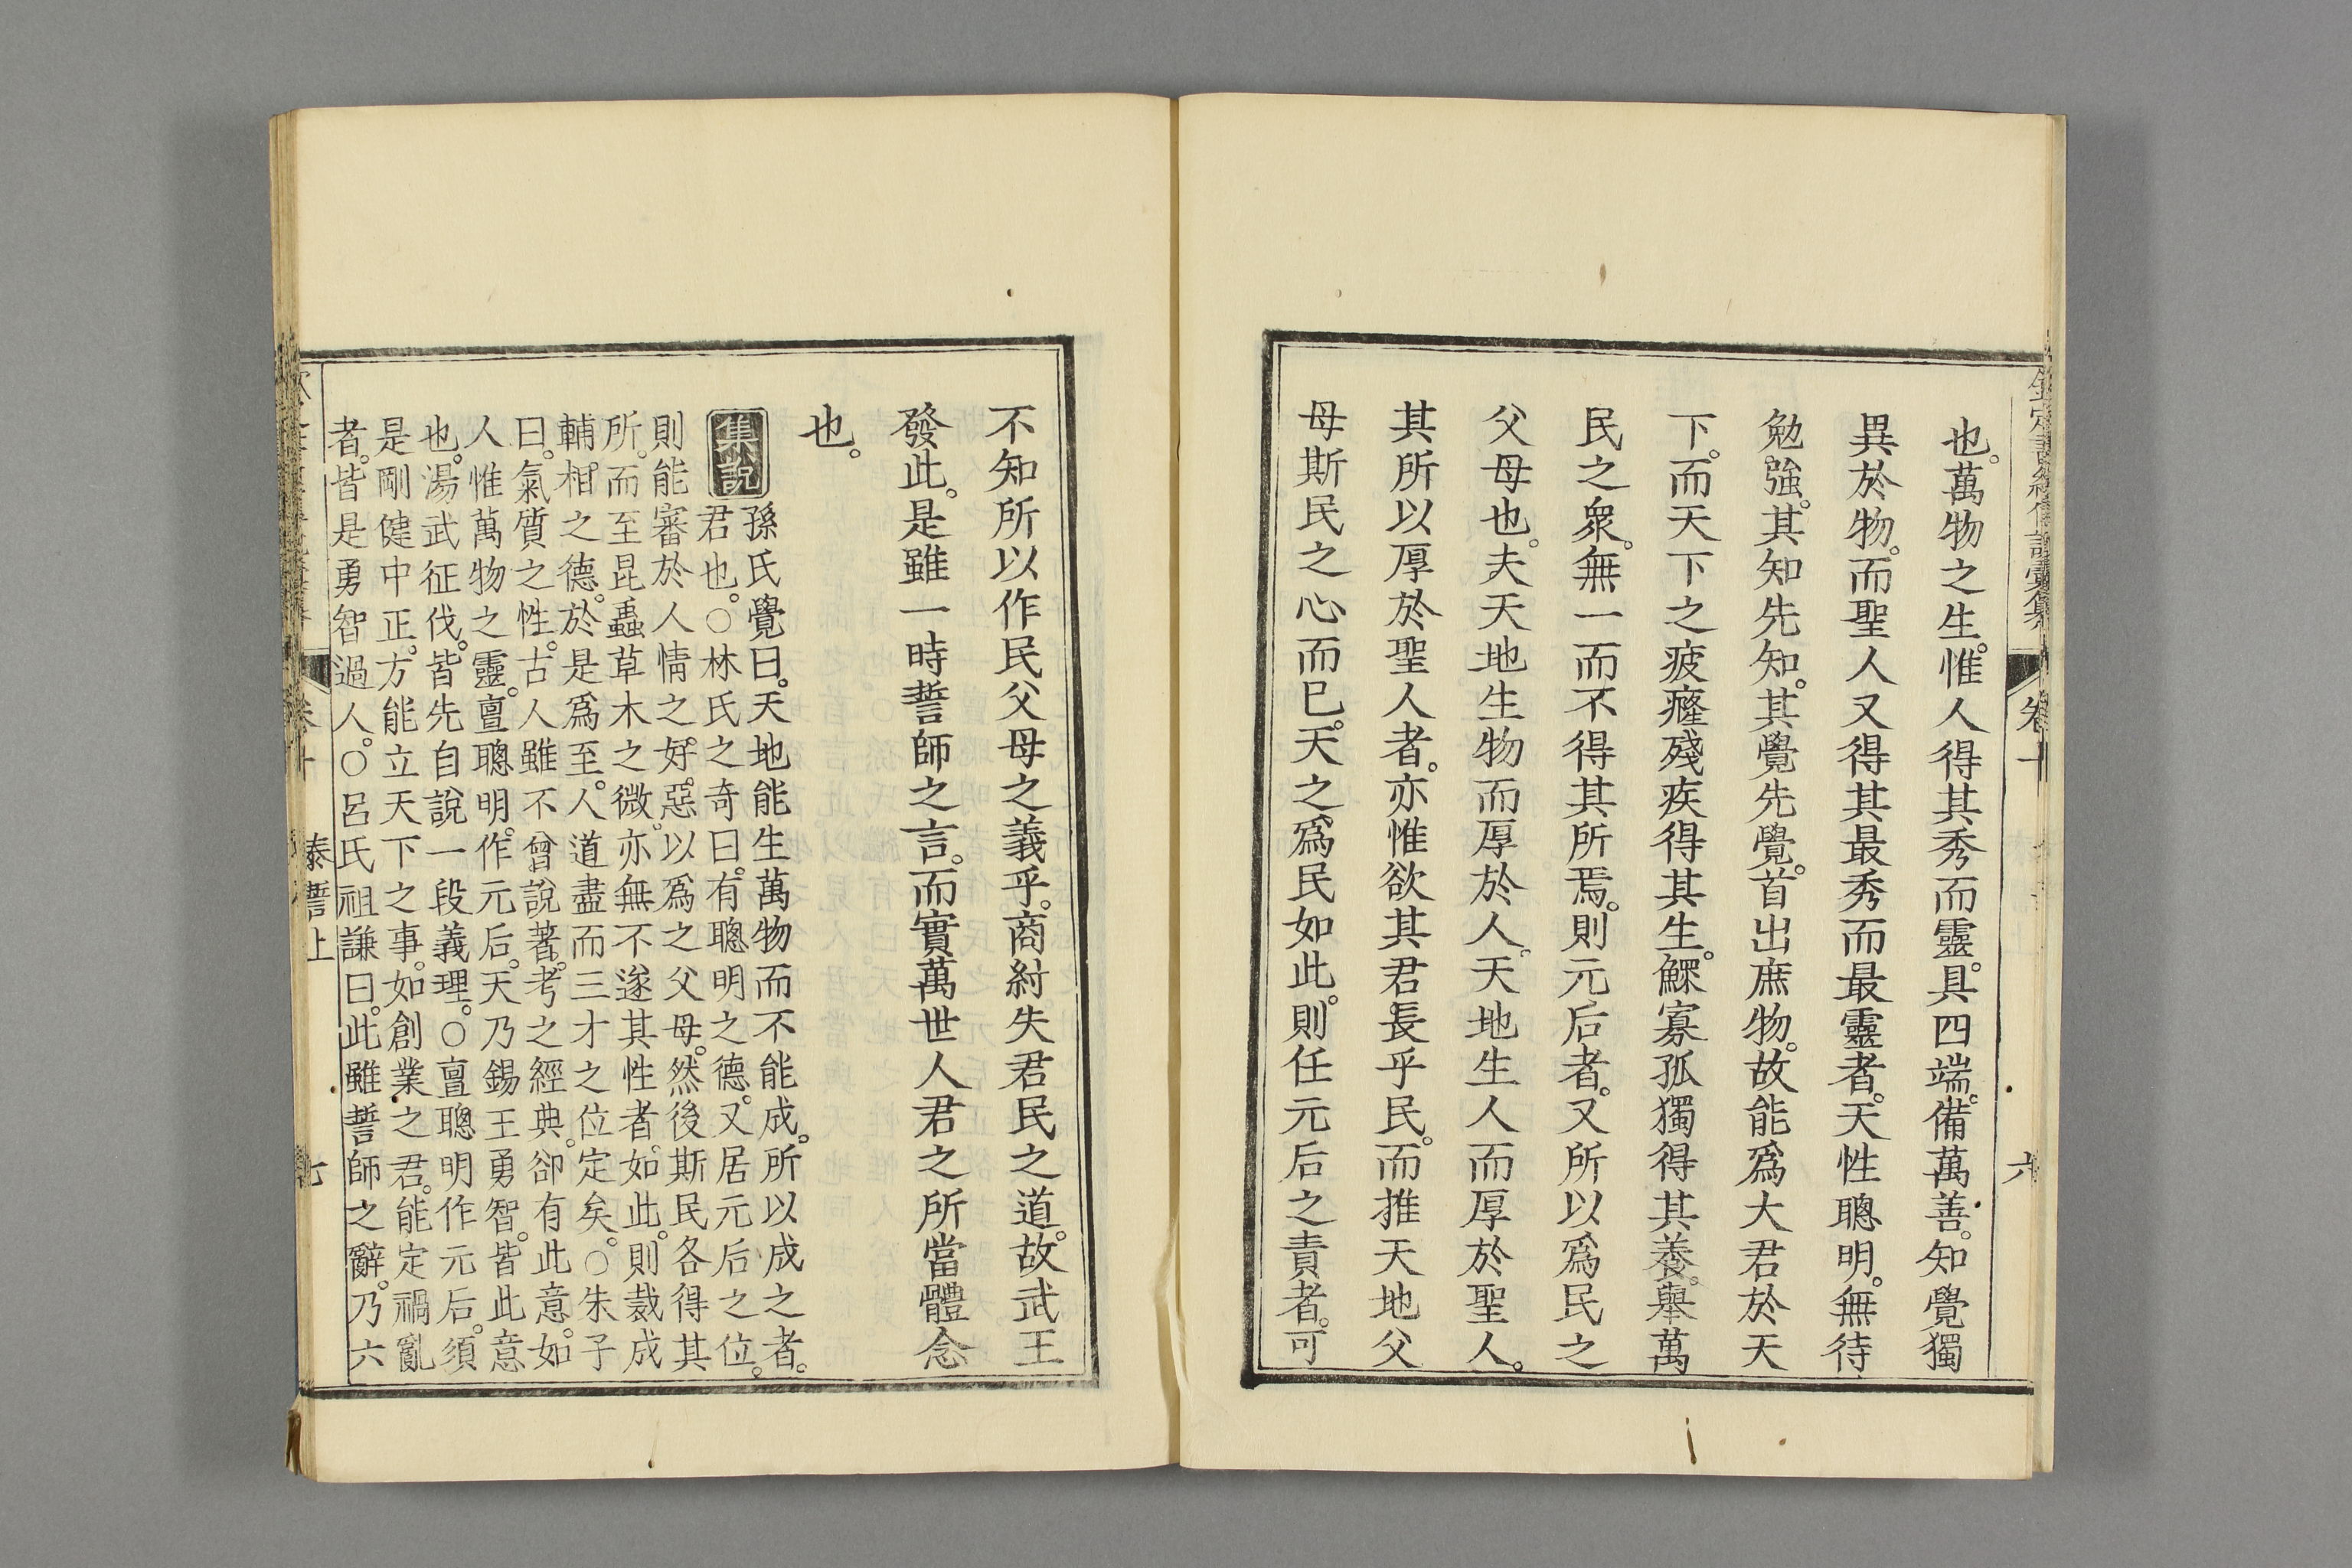 也。萬物之生。惟人得其秀而靈。具四端。備萬善。知覺獨
異於物。而聖人又得其最秀而最靈者。天性聰明。無待
勉強。其知先知。其覺先覺。首出庶物。故能爲大君於天
下。而天下之疲癃殘疾得其生。鰥寡孤獨得其養。舉萬
民之衆。無一而不得其所焉。則元后者。又所以爲民之
父母也。夫天地生物而厚於人。天地生人而厚於聖人。
其所以厚於聖人者。亦惟欲其君長乎民。而推天地父
母斯民之心而已。天之爲民如此。則任元后之責者。可
卷十
六
不知所以作民父母之義乎。商紂失君民之道。故武王
發此。是雖一時誓師之言。而實萬世人君之所當體念
也。
集說
孫氏覺曰。天地能生萬物而不能成。所以成之者。
君也。○林氏之奇曰。有聰明之德。又居元后之位。
則能審於人情之好惡。以爲之父母。然後斯民各得其
所。而至昆蟲草木之微。亦無不遂其性者。如此。則裁成
輔相之德。於是爲至。人道盡而三才之位定矣。○朱子
曰。氣質之性。古人雖不曾說著。考之經典。卻有此意。如
人惟萬物之靈。亶聰明。作元后。天乃錫王勇智。皆此意
也。湯武征伐。皆先自說一段義理。○亶聰明作元后。須
是剛健中正。方能立天下之事。如創業之君。能定禍亂
者。皆是勇智過人。○呂氏祖謙曰。此雖誓師之辭。乃六
泰誓上
七